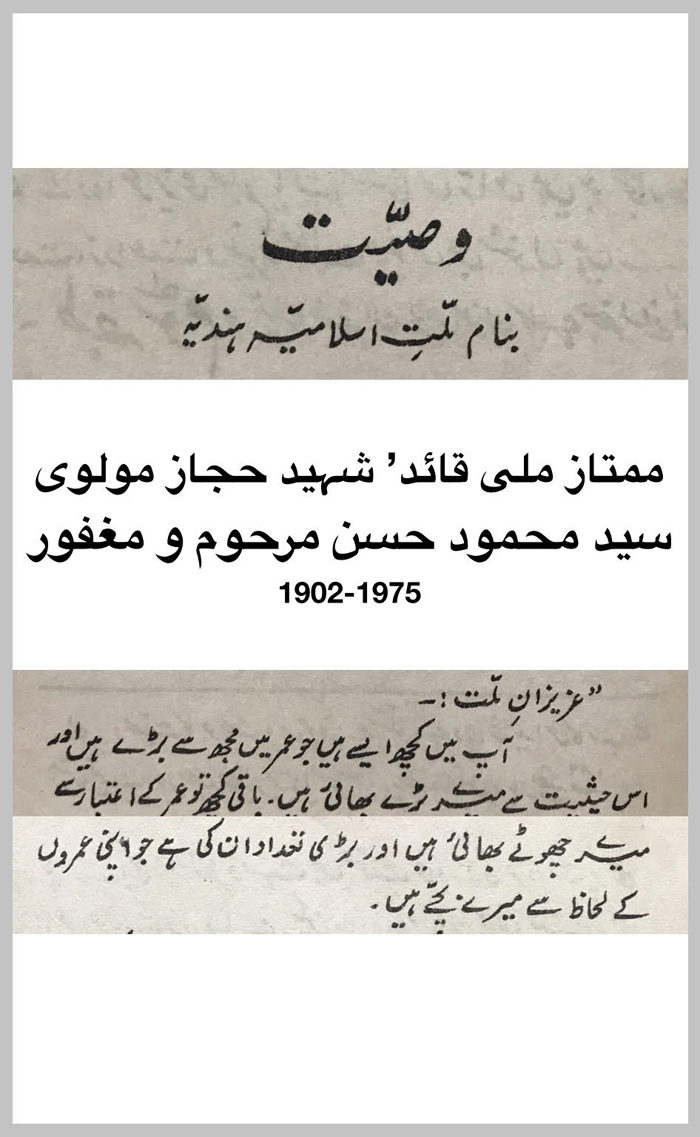 وصیّت
بنام ملّتِ اسلامیّہ ہندیّہ
ممتاز ملی قائد’ شہید حجاز مولوی
سید محمود حسن مرحوم و مغفور
1902-1975
”عزیزانِ ملّت :۔
آپ میں کچھ ایسے ہیں جو عمر میں مجھ سے بڑے ہیں اور
اس حیثیت سے میرے بڑے بھائی ہیں۔ باقی کچھ تو عمر کے اعتبار سے
میرے چھوٹے بھائی ہیں اور بڑی تعداد ان کی ہے جو اپنی عمروں
کے لحاظ سے میرے بچّے ہیں۔